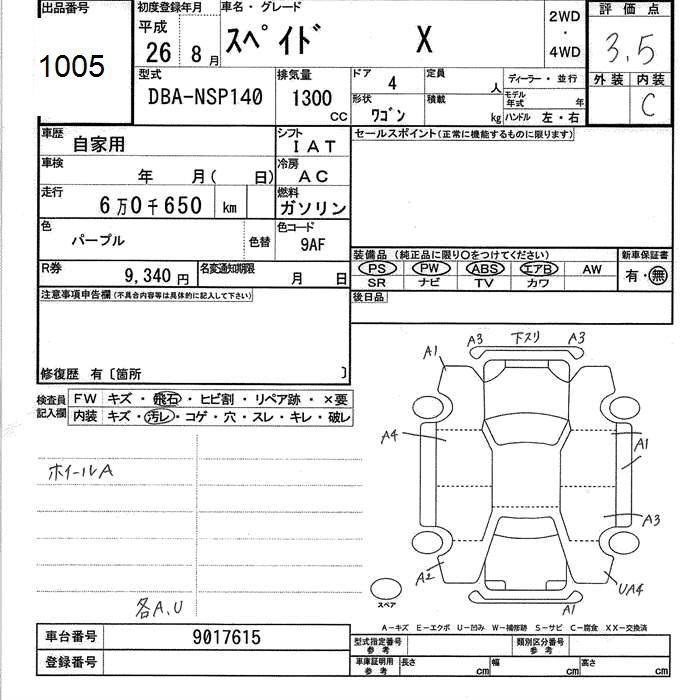 出品番号
1005
初度登録年月
平成
26 8月
車名・グレード
スペイド X
2WD
・
4WD
評価点
3.5
外装 内装
C
型式
DBA-NSP140
排気量
1300
CC
ドア 4
定員 人
形状 ワゴン
積載 kg
ディーラー・並行
モデル年式 年
ハンドル 左・右
車歴 自家用
シフト IAT
セールスポイント(正常に機能するものに限ります)
車検 年 月( 日)
冷房 AC
走行 6万0千650 km
燃料 ガソリン
色 パープル
色替
色コード 9AF
装備品 (純正品に限り〇をつけてください)
新車保証書
PS PW ABS エアB AW
SR ナビ TV カワ
有・無
R券 9,340円
名変通知期限 月 日
後日品
注意事項申告欄(不具合内容等は具体的に記入して下さい)
修復歴 有〔箇所 〕
検査員記入欄
FW キズ・飛石・ヒビ割・リペア跡・×要
内装 キズ・汚レ・コゲ・穴・スレ・キレ・破レ
ホイールA
各A、U
A3 下スリ A3
A1
A4
A1
A3
A2
UA4
A1
スペア
A-キズ E-エクボ U-凹み W-補修跡 S-サビ C-腐食 XX-交換済
車台番号 9017615
登録番号
型式指定番号 参考
類別区分番号 参考
車庫証明用 参考
長さ cm
幅 cm
高さ cm